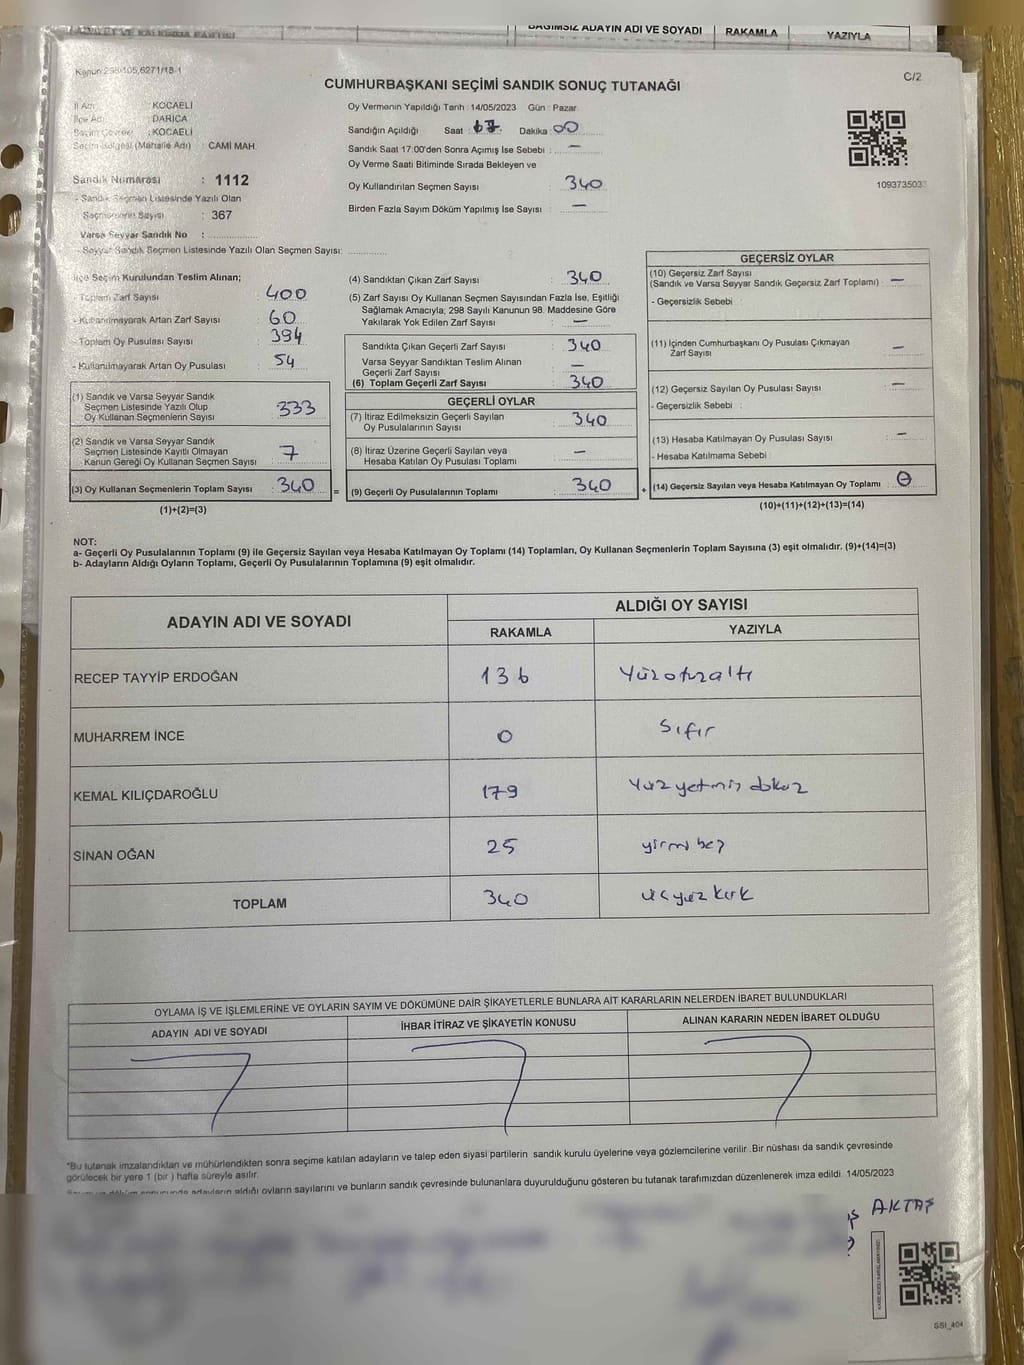 BAĞIMSIZ ADAYIN ADI VE SOYADI RAKAMLA YAZIYLA
C/2
CUMHURBAŞKANI SEÇİMİ SANDIK SONUÇ TUTANAĞI
İl Adı : KOCAELİ
İlçe Adı : DARICA
Seçim Çevresi : KOCAELİ
Seçim Bölgesi (Mahalle Adı) : CAMİ MAH.
Sandık Numarası : 1112
- Sandık Seçmen Listesinde Yazılı Olan
Seçmenlerin Sayısı : 367
Varsa Seyyar Sandık No :
- Seyyar Sandık Seçmen Listesinde Yazılı Olan Seçmen Sayısı:
Oy Vermenin Yapıldığı Tarih : 14/05/2023 Gün : Pazar
Sandığın Açıldığı Saat : 17 Dakika : 00
Sandık Saat 17:00'den Sonra Açımış İse Sebebi : —
Oy Verme Saati Bitiminde Sırada Bekleyen ve
Oy Kullandırılan Seçmen Sayısı : 340
Birden Fazla Sayım Döküm Yapılmış İse Sayısı : —
109373503
İlçe Seçim Kurulundan Teslim Alınan;
- Toplam Zarf Sayısı : 400
- Kullanılmayarak Artan Zarf Sayısı : 60
- Toplam Oy Pusulası Sayısı : 394
- Kullanılmayarak Artan Oy Pusulası : 54
(1) Sandık ve Varsa Seyyar Sandık
Seçmen Listesinde Yazılı Olup
Oy Kullanan Seçmenlerin Sayısı : 333
(2) Sandık ve Varsa Seyyar Sandık
Seçmen Listesinde Kayıtlı Olmayan
Kanun Gereği Oy Kullanan Seçmen Sayısı : 7
(3) Oy Kullanan Seçmenlerin Toplam Sayısı : 340
(1)+(2)=(3)
(4) Sandıktan Çıkan Zarf Sayısı : 340
(5) Zarf Sayısı Oy Kullanan Seçmen Sayısından Fazla İse, Eşitliği
Sağlamak Amacıyla; 298 Sayılı Kanunun 98. Maddesine Göre
Yakılarak Yok Edilen Zarf Sayısı : —
Sandıkta Çıkan Geçerli Zarf Sayısı : 340
Varsa Seyyar Sandıktan Teslim Alınan
Geçerli Zarf Sayısı : —
(6) Toplam Geçerli Zarf Sayısı : 340
GEÇERLİ OYLAR
(7) İtiraz Edilmeksizin Geçerli Sayılan
Oy Pusulalarının Sayısı : 340
(8) İtiraz Üzerine Geçerli Sayılan veya
Hesaba Katılan Oy Pusulası Toplamı : —
= (9) Geçerli Oy Pusulalarının Toplamı : 340
GEÇERSİZ OYLAR
(10) Geçersiz Zarf Sayısı
(Sandık ve Varsa Seyyar Sandık Geçersiz Zarf Toplamı) : —
- Geçersizlik Sebebi :
(11) İçinden Cumhurbaşkanı Oy Pusulası Çıkmayan
Zarf Sayısı : —
(12) Geçersiz Sayılan Oy Pusulası Sayısı : —
- Geçersizlik Sebebi :
(13) Hesaba Katılmayan Oy Pusulası Sayısı : —
- Hesaba Katılmama Sebebi :
+ (14) Geçersiz Sayılan veya Hesaba Katılmayan Oy Toplamı : 0
(10)+(11)+(12)+(13)=(14)
NOT:
a- Geçerli Oy Pusulalarının Toplamı (9) ile Geçersiz Sayılan veya Hesaba Katılmayan Oy Toplamı (14) Toplamları, Oy Kullanan Seçmenlerin Toplam Sayısına (3) eşit olmalıdır. (9)+(14)=(3)
b- Adayların Aldığı Oyların Toplamı, Geçerli Oy Pusulalarının Toplamına (9) eşit olmalıdır.
ADAYIN ADI VE SOYADI ALDIĞI OY SAYISI
RAKAMLA YAZIYLA
RECEP TAYYİP ERDOĞAN 136 Yüzotuzaltı
MUHARREM İNCE 0 Sıfır
KEMAL KILIÇDAROĞLU 179 Yüz yetmiş dokuz
SİNAN OĞAN 25 yirmi beş
TOPLAM 340 üçyüz kırk
OYLAMA İŞ VE İŞLEMLERİNE VE OYLARIN SAYIM VE DÖKÜMÜNE DAİR ŞİKAYETLERLE BUNLARA AİT KARARLARIN NELERDEN İBARET BULUNDUKLARI
ADAYIN ADI VE SOYADI İHBAR İTİRAZ VE ŞİKAYETİN KONUSU ALINAN KARARIN NEDEN İBARET OLDUĞU
*Bu tutanak imzalandıktan ve mühürlendikten sonra seçime katılan adayların ve talep eden siyasi partilerin sandık kurulu üyelerine veya gözlemcilerine verilir. Bir nüshası da sandık çevresinde
görülecek bir yere 1 (bir) hafta süreyle asılır.
adayların aldığı oyların sayılarını ve bunların sandık çevresinde bulunanlara duyurulduğunu gösteren bu tutanak tarafımızdan düzenlenerek imza edildi. 14/05/2023
AKTAŞ
SSI_404